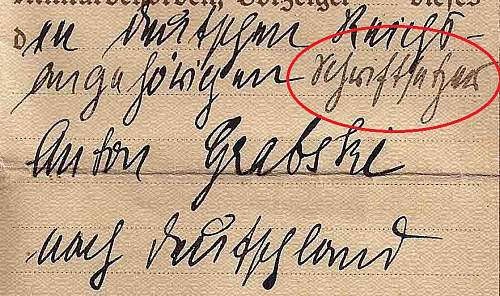 dieses
den deutschen Reichs-
angehörigen Schriftsetzer
Anton Grabski
nach Deutschland